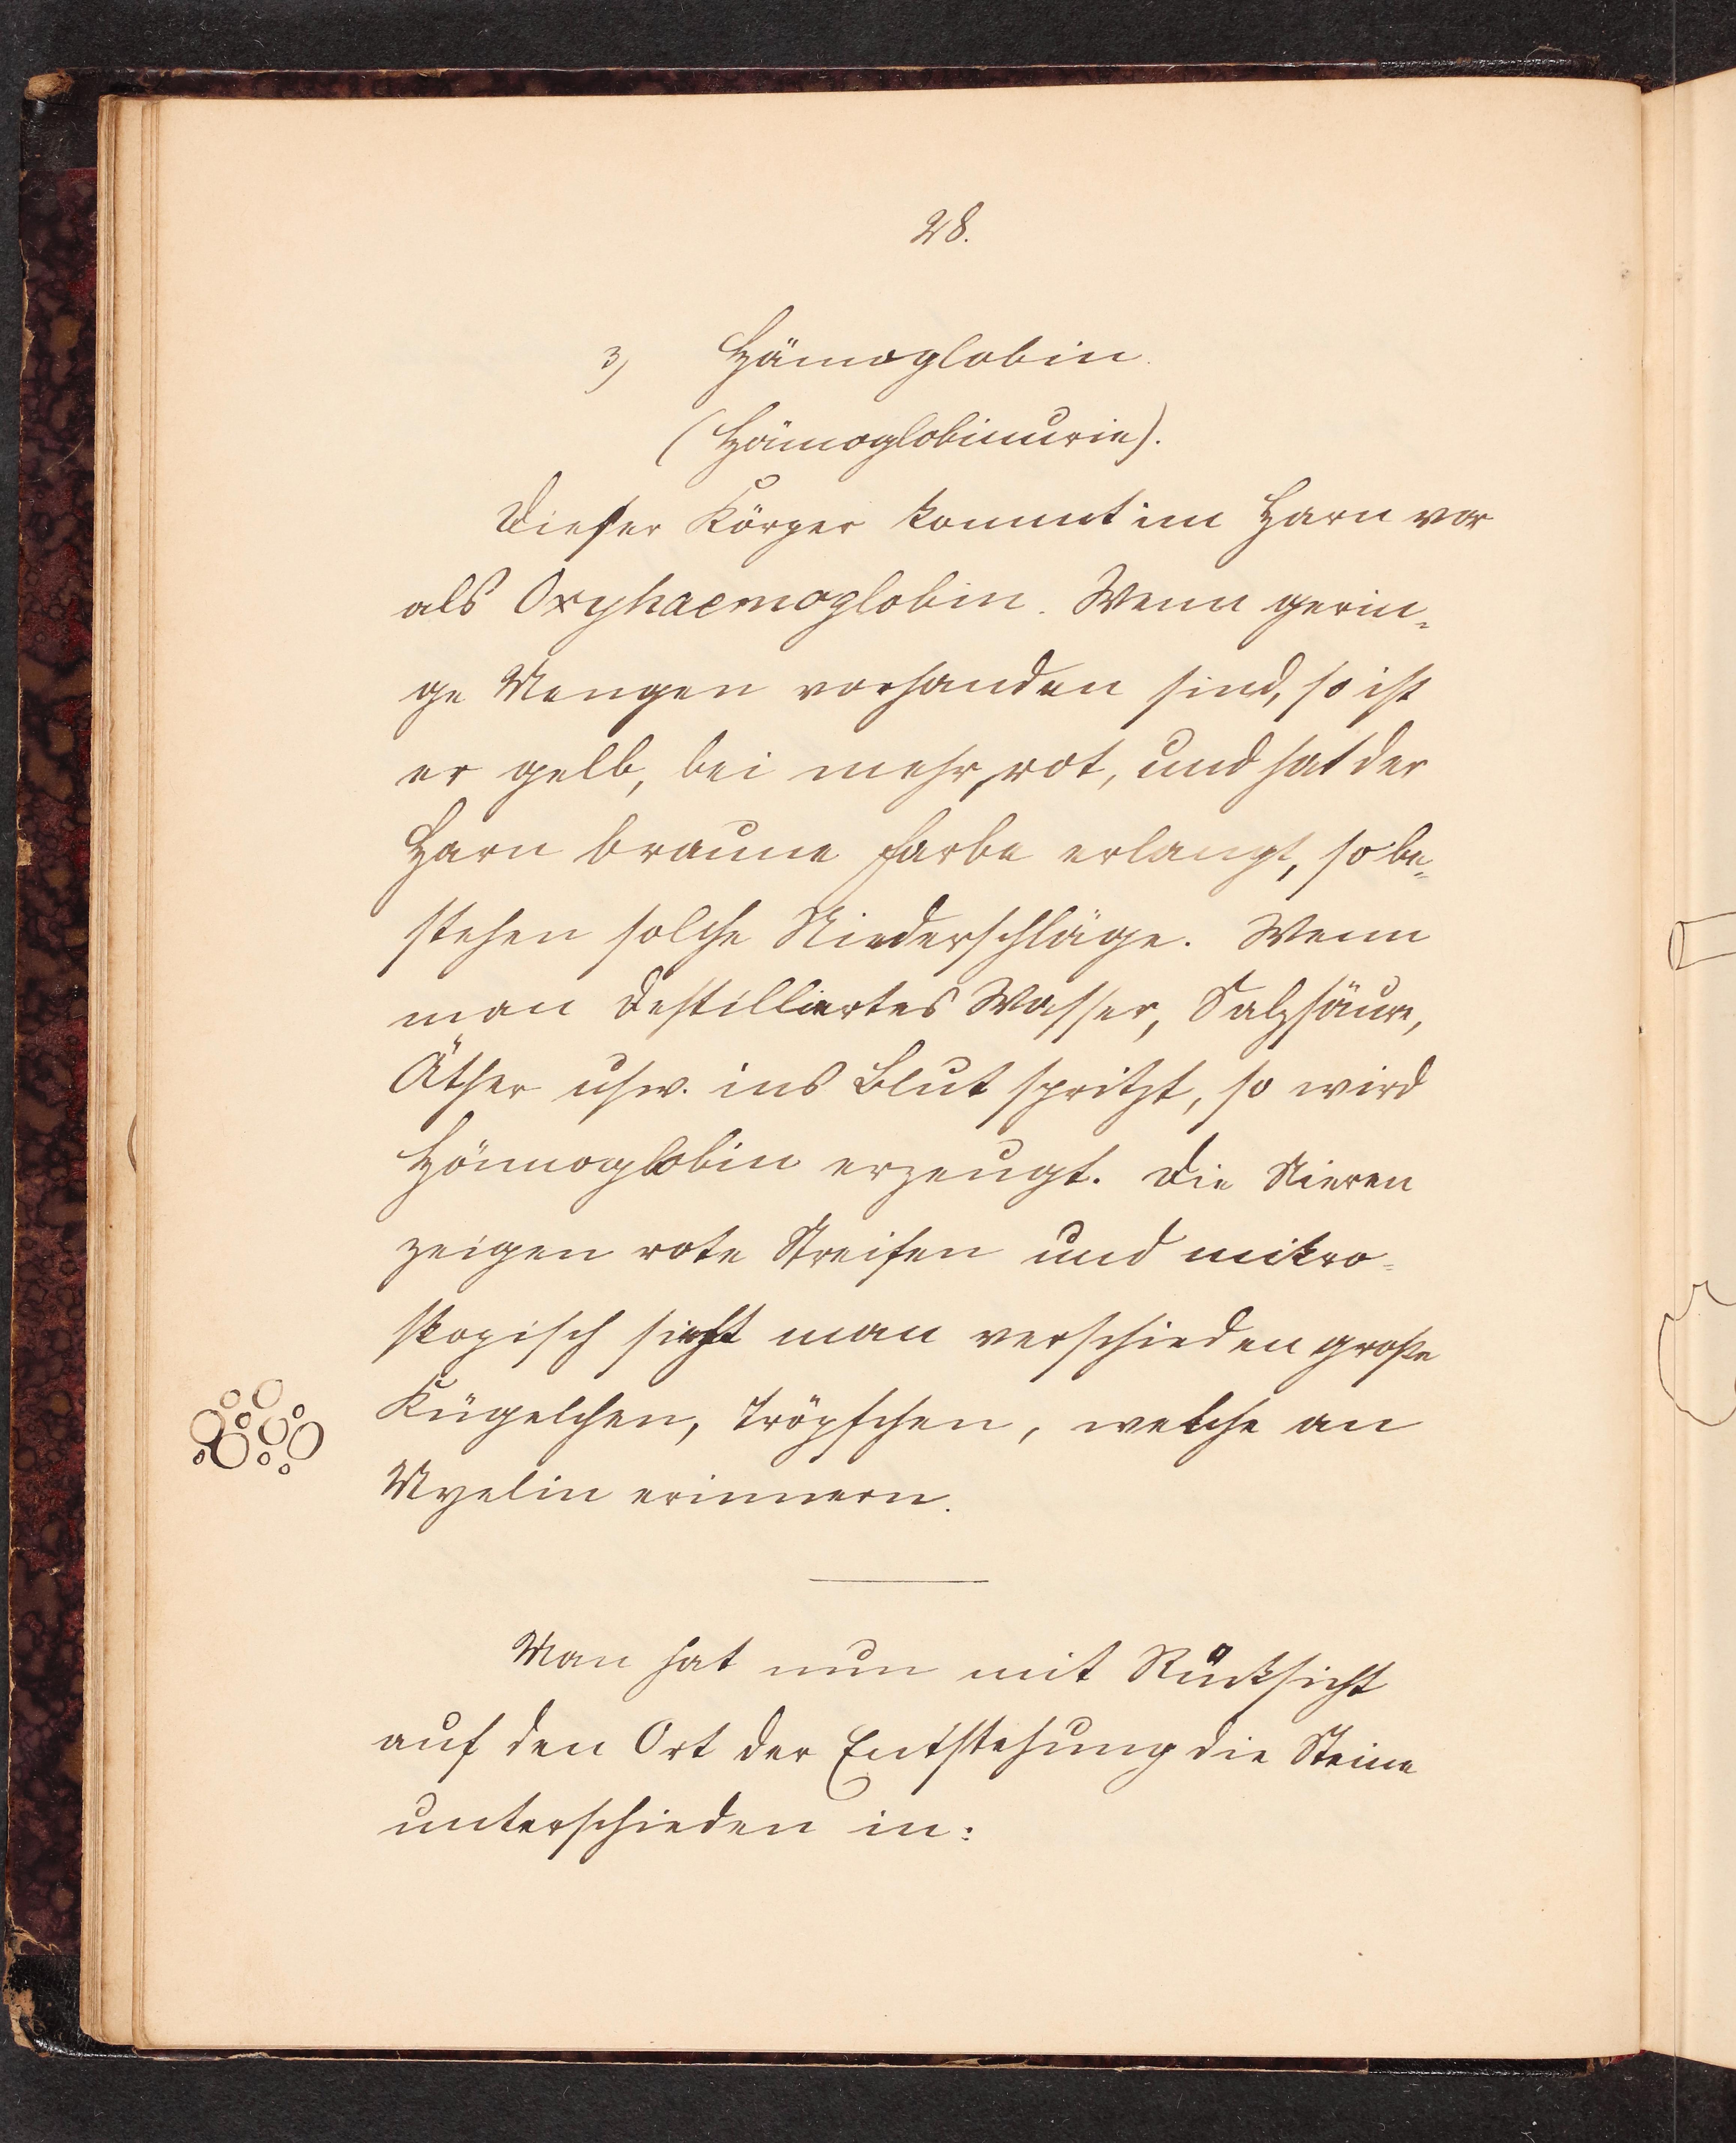 28.
3) Hämoglobin.
(Hämoglobinurie).
Dieser Körper kommt im Harn vor
als Oxyhaemoglobin. Wenn gerin-
ge Mengen vorhanden sind, so ist
er gelb, bei mehr, rot, und hat der
Harn braune Farbe erlangt, so be-
stehen solche Niederschläge. Wenn
man destilliertes Wasser, Salzsäure,
Äther usw. ins Blut spritzt, so wird
Hämoglobin erzeugt. Die Nieren
zeigen rote Streifen und mikro-
skopisch sieht man verschieden große
Kügelchen, Tröpfchen, welche an
Myelin erinnern.
Man hat nun mit Rücksicht
auf den Ort der Entstehung die Steine
unterschieden in: